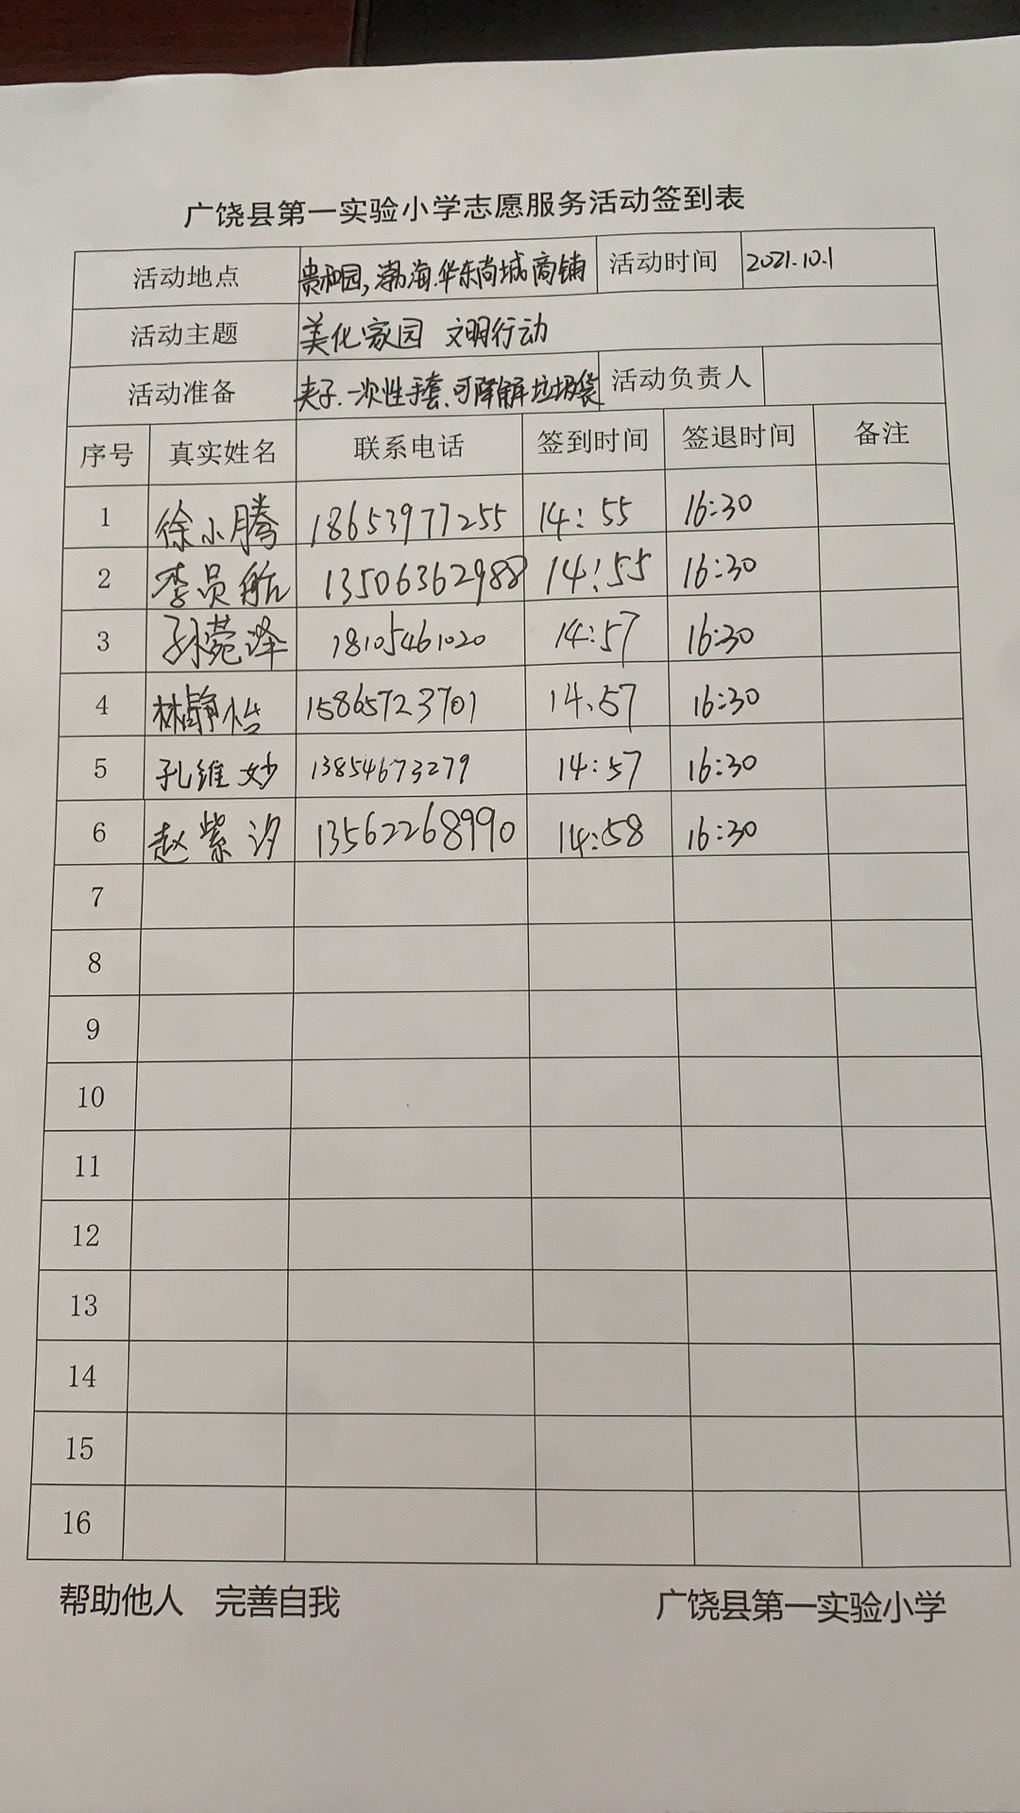 广饶县第一实验小学志愿服务活动签到表
活动地点 贵和园,渤海.华东尚城商铺 活动时间 2021.10.1
活动主题 美化家园 文明行动
活动准备 夹子.一次性手套.可降解垃圾袋 活动负责人
序号 真实姓名 联系电话 签到时间 签退时间 备注
1 徐小腾 18653977255 14:55 16:30
2 李员航 13506362988 14:55 16:30
3 孙菀泽 18105461020 14:57 16:30
4 林静怡 15865723701 14.57 16:30
5 孔维妙 13854673279 14:57 16:30
6 赵紫汐 13562268990 14:58 16:30
7
8
9
10
11
12
13
14
15
16
帮助他人 完善自我 广饶县第一实验小学